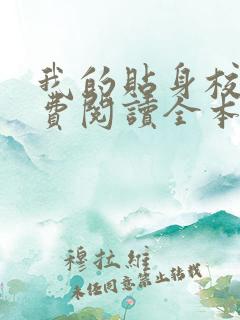 我的貼身校
費閱讀全本
穆拉維
未經同意禁止轉載